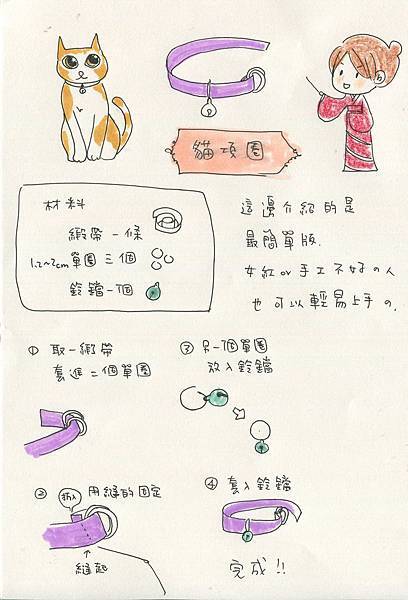 貓項圈
材料
緞帶一條
1.2~2cm單圈三個
鈴鐺一個
這邊介紹的是
最簡單版.
女紅or手工不好の人
也可以輕易上手の.
① 取一緞帶
套進二個單圈
② 用縫的固定
折入
縫起
③ 另一個單圈
放入鈴鐺
④ 套入鈴鐺
完成!!